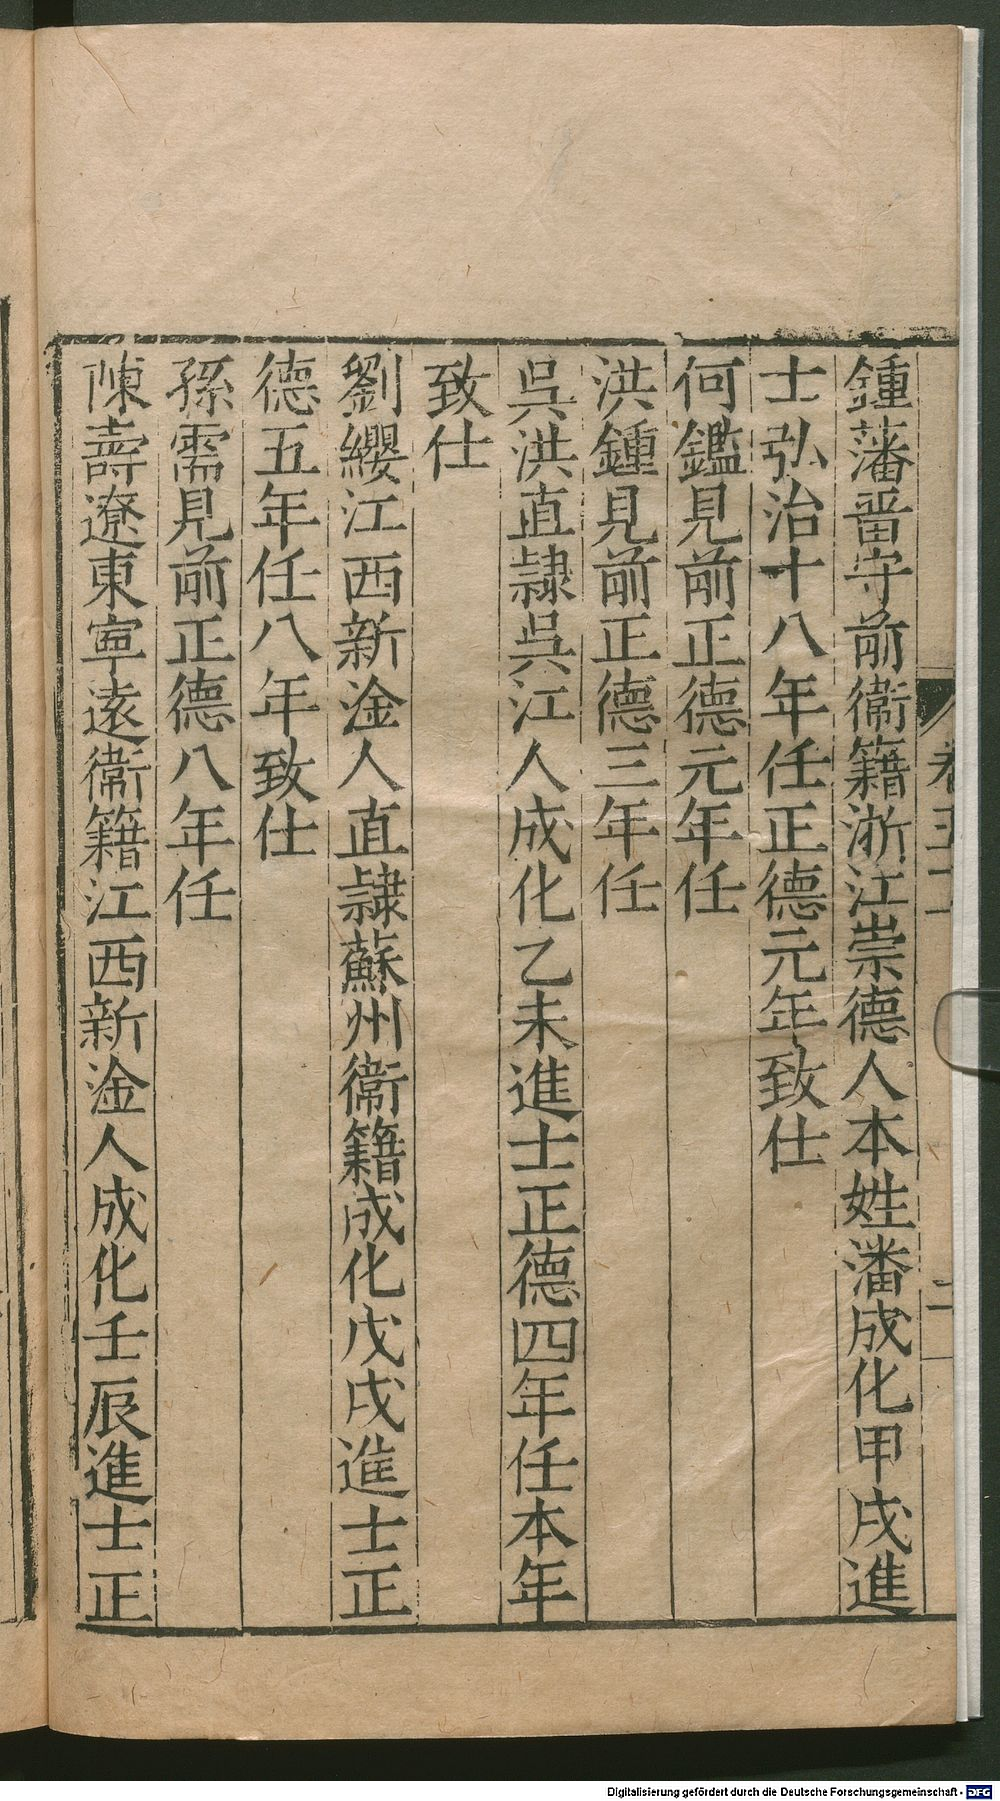 鍾藩晋守前衛籍浙江崇德人本姓潘成化甲戌進
士弘治十八年任正德元年致仕
何鑑見前正德元年任
洪鍾見前正德三年任
吳洪直隷吳江人成化乙未進士正德四年任本年
致仕
劉纓江西新淦人直隷蘇州衛籍成化戊戌進士正
德五年任八年致仕
孫需見前正德八年任
陳壽遼東寧遠衛籍江西新淦人成化壬辰進士正
二
Digitalisierung gefördert durch die Deutsche Forschungsgemeinschaft - DFG